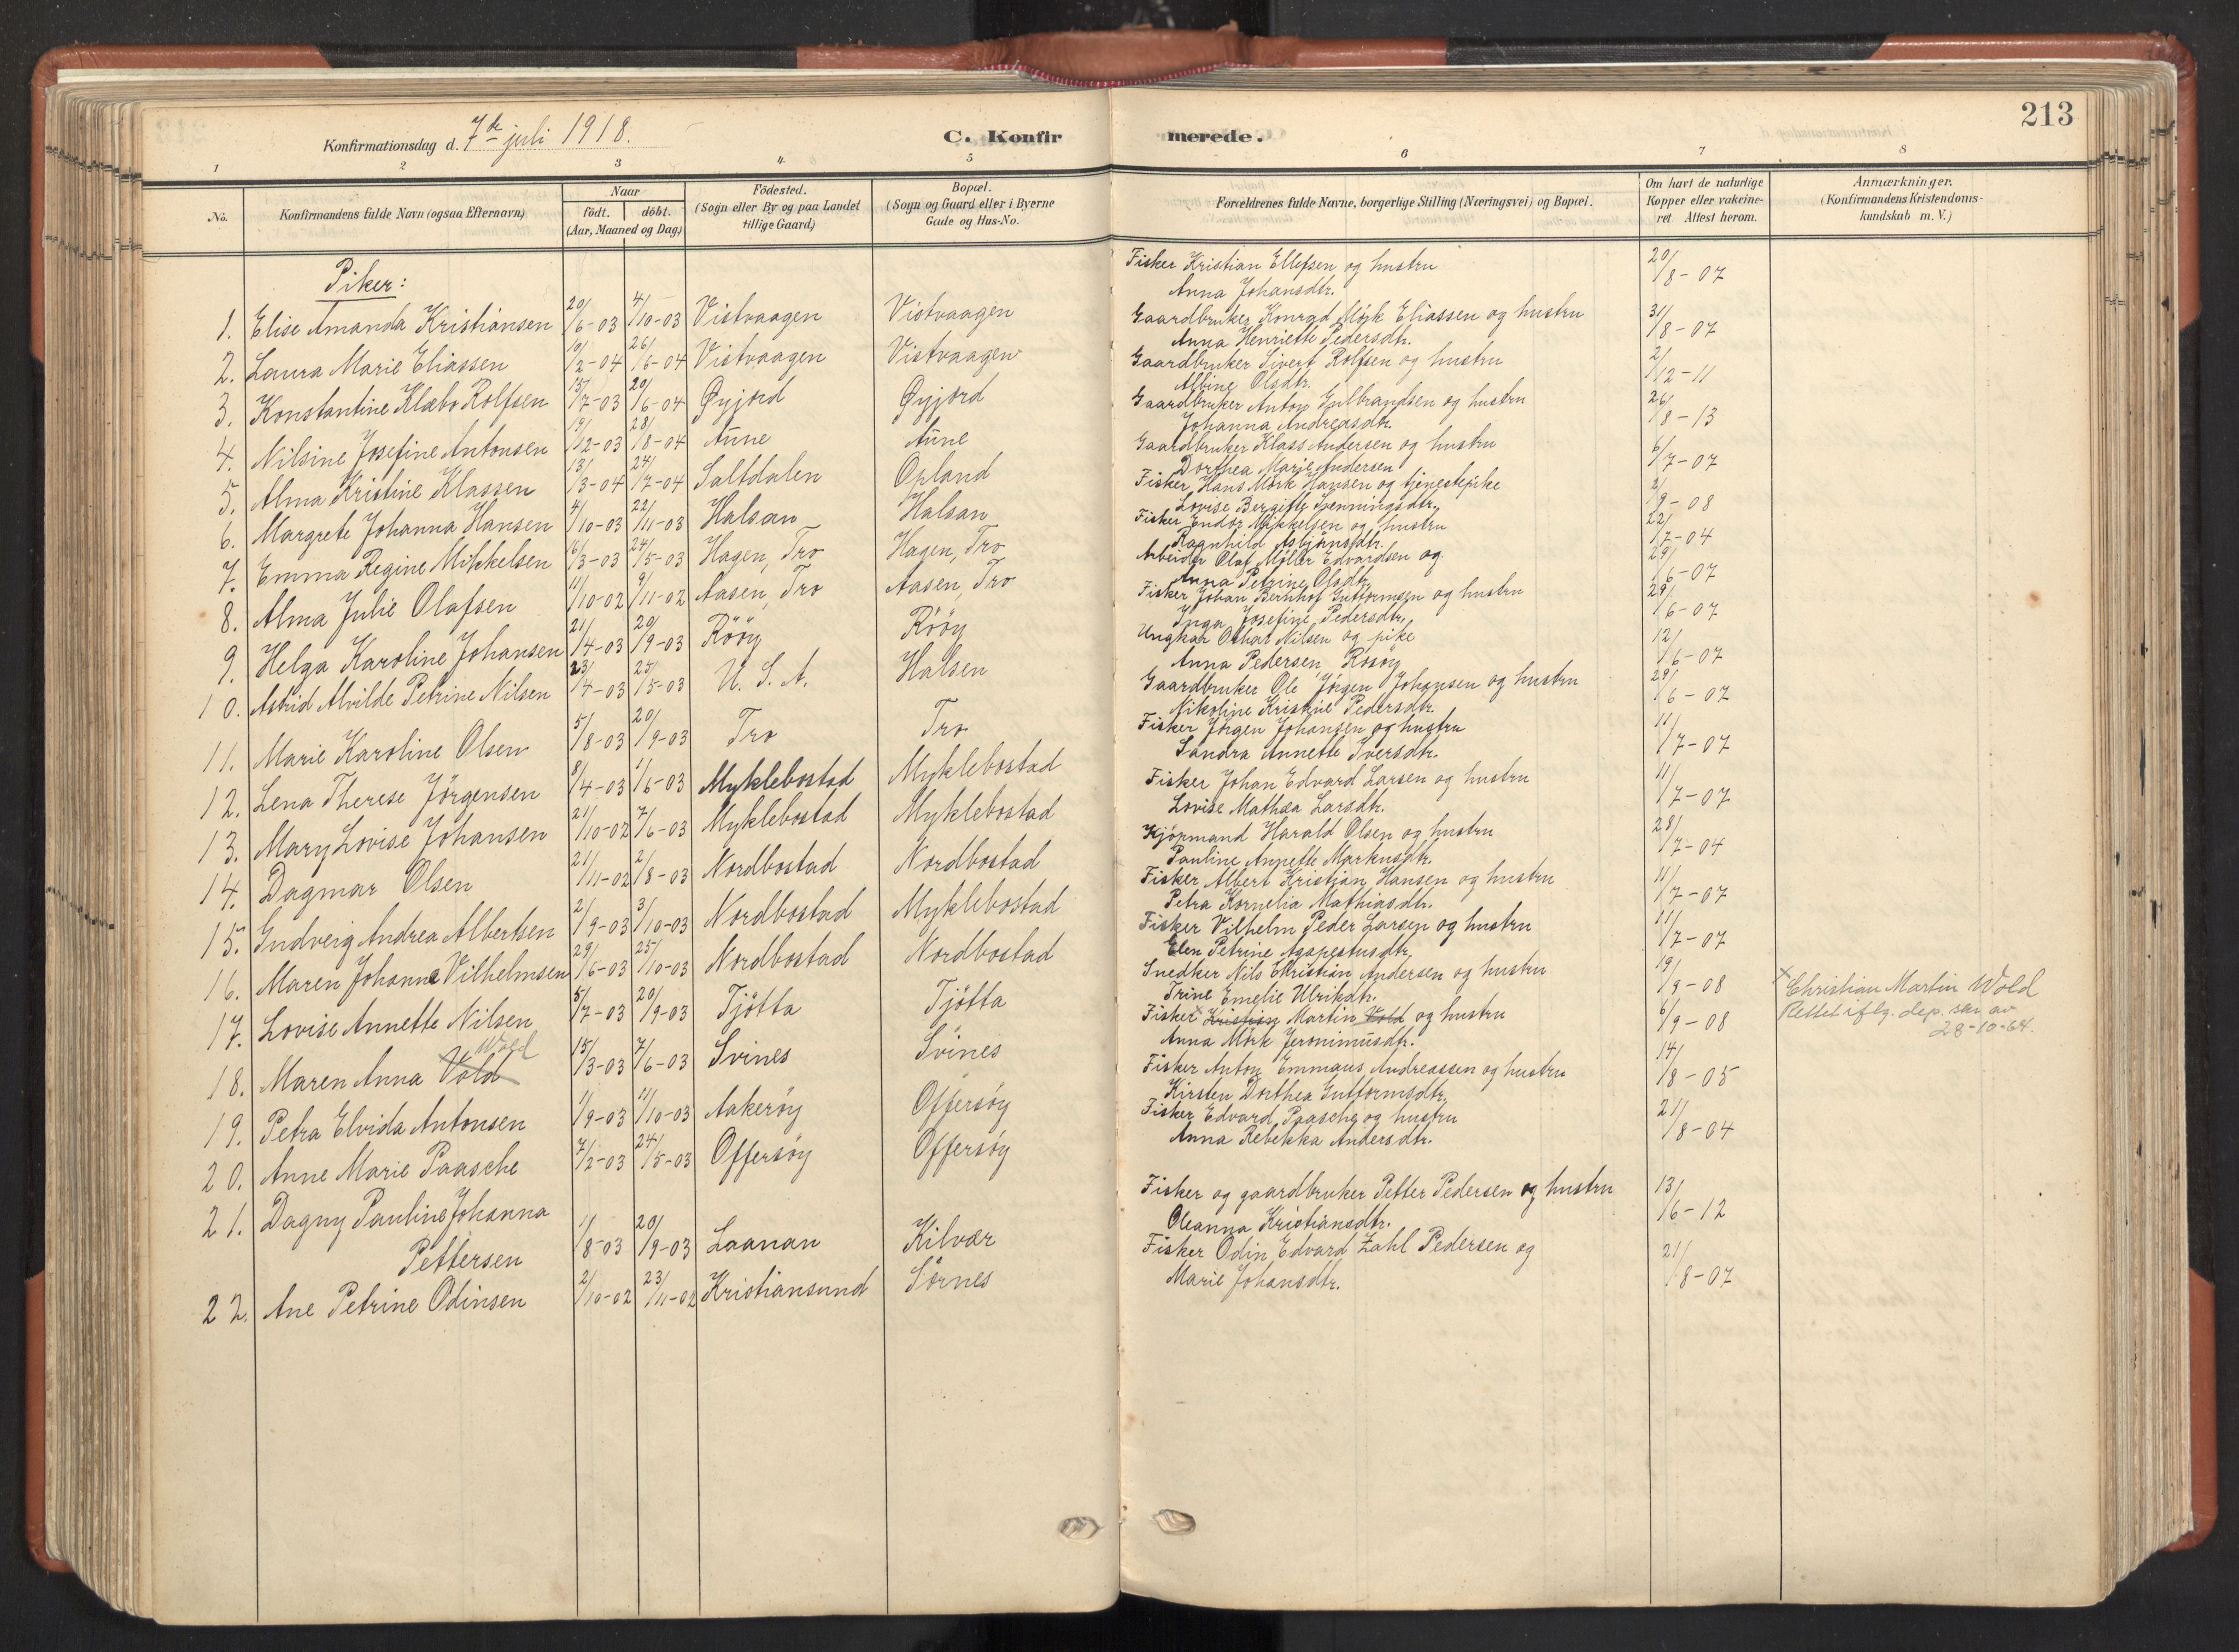 213
Konfirmationsdag d. 7de juli 1918.
C. Konfirmerede.
1 2 3 4 5 6 7 8
No.
Konfirmandens fulde Navn (ogsaa Efternavn)
Naar
födt. döbt.
(Aar, Maaned og Dag)
Födested.
(Sogn eller By og paa Landet
tillige Gaard)
Bopæl.
(Sogn og Gaard eller i Byerne
Gade og Hus-No.
Forældrenes fulde Navne, borgerlige Stilling (Næringsvei) og Bopæl.
Om havt de naturlige
Kopper eller vakcine-
ret Attest herom.
Anmærkninger.
(Konfirmandens Kristendoms-
kundskab m. V.)
Piker:
1. Elise Amanda Kristiansen 20/6-03 4/10-03 Vistvaagen Vistvaagen Fisker Kristian Ellefsen og hustru 20/8-07
Anna Johansdtr.
2. Laura Marie Eliassen 10/2-04 26/6-04 Vistvaagen Vistvaagen Gaardbruker Konrad Mörk Eliassen og hustru 31/8-07
Anna Henriette Pedersdtr.
3. Konstantine Klæbo Rolfsen 15/7-03 20/6-04 Øyjord Øyjord Gaardbruker Sivert Rolfsen og hustru 2/12-11
Albine Olsdtr.
4. Nilsine Josefine Antonsen 19/12-03 28/8-04 Aune Aune Gaardbruker Anton Gulbrandsen og hustru 26/8-13
Johanna Andreasdtr.
5. Alma Kristine Klassen 13/3-04 24/7-04 Saltdalen Opland Gaardbruker Klass Andersen og hustru 6/7-07
Dorthea Marie Andersen
6. Margrete Johanna Hansen 4/10-03 22/11-03 Halsan Halsan Fisker Hans Mörk Hansen og tjenestepike 2/9-08
Lovise Bergitte Svenningsdtr.
7. Emma Regine Mikkelsen 16/3-03 24/5-03 Hagen, Tro Hagen, Tro Fisker Endor Mikkelsen og hustru 22/7-04
Ragnhild Asbjörnsdtr.
8. Alma Julie Olafsen 11/10-02 9/11-02 Aasen, Tro Aasen, Tro Arbeider Olaf Möller Edvardsen og 29/6-07
Anna Petrine Olsdtr.
9. Helga Karoline Johansen 21/4-03 20/9-03 Rööy Rööy Fisker Johan Bernhof Guttormsen og hustru 29/6-07
Inga Josefine Pedersdtr.
10. Astrid Alvilde Petrine Nilsen 23/4-03 25/5-03 U. S. A. Halsen Ungkar Othar Nilsen og pike 12/6-07
Anna Pedersen, Rosöy
11. Marie Karoline Olsen 5/8-03 20/9-03 Tro Tro Gaardbruker Ole Jörgen Johansen og hustru 29/6-07
Nikoline Kristine Pedersdtr.
12. Lena Therese Jörgensen 8/4-03 1/6-03 Myklebostad Myklebostad Fisker Jörgen Johansen og hustru 11/7-07
Sandra Annette Iversdtr.
13. Mary Lovise Johansen 21/10-02 7/6-03 Myklebostad Myklebostad Fisker Johan Edvard Larsen og hustru 11/7-07
Lovise Mathea Larsdtr.
14. Dagmar Olsen 21/11-02 2/8-03 Nordbostad Nordbostad Kjöpmand Harald Olsen og hustru 28/7-04
Pauline Annette Markusdtr.
15. Gudveig Andrea Albertsen 2/9-03 3/10-03 Nordbostad Myklebostad Fisker Albert Kristian Hansen og hustru 11/7-07
Petra Kornelia Mathiasdtr.
16. Maren Johanne Vilhelmsen 29/6-03 25/10-03 Nordbostad Nordbostad Fisker Vilhelm Peder Larsen og hustru 11/7-07
Elen Petrine Agapestusdtr.
17. Lovise Annette Nilsen 5/7-03 20/9-03 Tjötta Tjötta Snedker Nils Christian Andersen og hustru 19/9-08
Trine Emelie Ulriksdtr.
18. Maren Anna Vold Wold 15/3-03 7/6-03 Svines Svines Fisker x Kristian Martin Vold og hustru 6/9-08
Anna Mörk Jeronimusdtr.
x Christian Martin Wold
Rettet iflg. dep. skr. av
28-10-64.
19. Petra Elvida Antonsen 1/9-03 11/10-03 Aakeröy Offersöy Fisker Anton Emmaus Andreassen og hustru 14/8-05
Kirsten Dorthea Guttormsdtr.
20. Anne Marie Paasche 7/2-03 24/5-03 Offersöy Offersöy Fisker Edvard Paasche og hustru 21/8-04
Anna Rebekka Andersdtr.
21. Dagny Pauline Johanna
Pettersen 1/8-03 20/9-03 Laanan Kilvær Fisker og gaardbruker Petter Pedersen og hustru 13/6-12
Oleanna Kristiansdtr.
22. Ane Petrine Odinsen 2/10-02 23/11-02 Kristiansund Sörnes Fisker Odin Edvard Zahl Pedersen og 21/8-07
Marie Johansdtr.